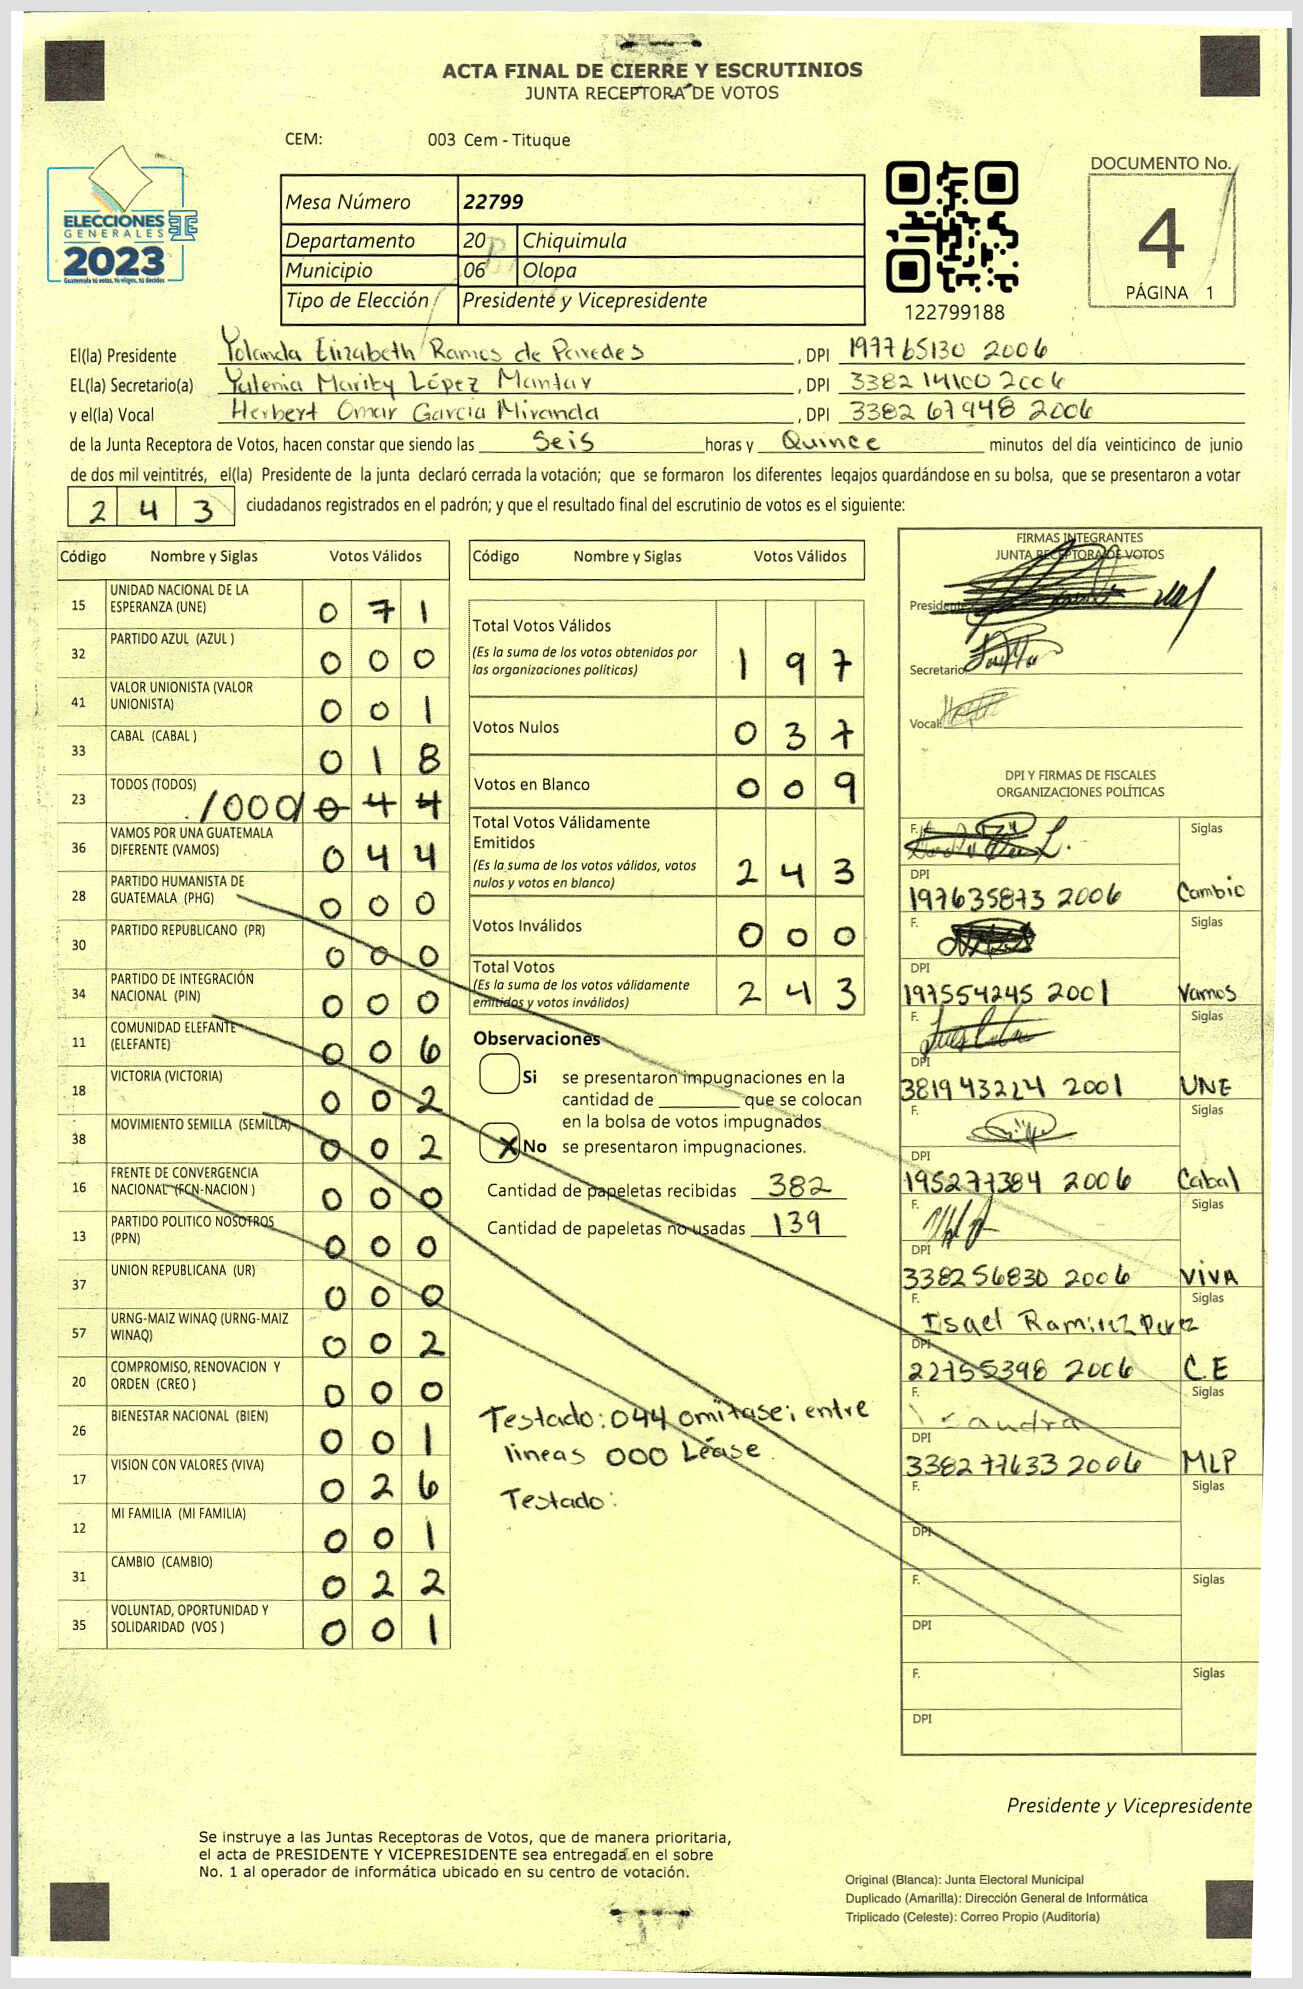 ACTA FINAL DE CIERRE Y ESCRUTINIOS
JUNTA RECEPTORA DE VOTOS
CEM: 003 Cem - Tituque
DOCUMENTO No.
4
PÁGINA 1
ELECCIONES
GENERALES
2023
Guatemala tú votas, tú eliges, tú decides
Mesa Número 22799
Departamento 20 Chiquimula
Municipio 06 Olopa
Tipo de Elección Presidente y Vicepresidente
122799188
El(la) Presidente Yolanda Elizabeth Ramos de Paredes, DPI 197765130 2006
EL(la) Secretario(a) Yulenia Mariby López, DPI 3382 14100 2006
y el(la) Vocal Herbert Omar Garcia Miranda, DPI 3382 67948 2006
de la Junta Receptora de Votos, hacen constar que siendo las Seis horas y Quince minutos del día veinticinco de junio
de dos mil veintitrés, el(la) Presidente de la junta declaró cerrada la votación; que se formaron los diferentes legajos guardándose en su bolsa, que se presentaron a votar
243 ciudadanos registrados en el padrón; y que el resultado final del escrutinio de votos es el siguiente:
Código Nombre y Siglas Votos Válidos
15 UNIDAD NACIONAL DE LA ESPERANZA (UNE) 071
32 PARTIDO AZUL (AZUL ) 000
41 VALOR UNIONISTA (VALOR UNIONISTA) 001
33 CABAL (CABAL ) 018
23 TODOS (TODOS) /000/ 044
36 VAMOS POR UNA GUATEMALA DIFERENTE (VAMOS) 044
28 PARTIDO HUMANISTA DE GUATEMALA (PHG) 000
30 PARTIDO REPUBLICANO (PR) 000
34 PARTIDO DE INTEGRACIÓN NACIONAL (PIN) 000
11 COMUNIDAD ELEFANTE (ELEFANTE) 006
18 VICTORIA (VICTORIA) 002
38 MOVIMIENTO SEMILLA (SEMILLA) 002
16 FRENTE DE CONVERGENCIA NACIONAL (FCN-NACION ) 000
13 PARTIDO POLITICO NOSOTROS (PPN) 000
37 UNION REPUBLICANA (UR) 000
57 URNG-MAIZ WINAQ (URNG-MAIZ WINAQ) 002
20 COMPROMISO, RENOVACION Y ORDEN (CREO ) 000
26 BIENESTAR NACIONAL (BIEN) 001
17 VISION CON VALORES (VIVA) 026
12 MI FAMILIA (MI FAMILIA) 001
31 CAMBIO (CAMBIO) 022
35 VOLUNTAD, OPORTUNIDAD Y SOLIDARIDAD (VOS ) 001
Código Nombre y Siglas Votos Válidos
Total Votos Válidos 197
(Es la suma de los votos obtenidos por
las organizaciones políticas)
Votos Nulos 037
Votos en Blanco 009
Total Votos Válidamente
Emitidos 243
(Es la suma de los votos válidos, votos
nulos y votos en blanco)
Votos Inválidos 000
Total Votos 243
(Es la suma de los votos válidamente
emitidos y votos inválidos)
Observaciones
Si se presentaron impugnaciones en la
cantidad de ________ que se colocan
en la bolsa de votos impugnados
X No se presentaron impugnaciones.
Cantidad de papeletas recibidas 382
Cantidad de papeletas no usadas 139
Testado: 044 omitase; entre
lineas 000 Léase
Testado:
FIRMAS INTEGRANTES
JUNTA RECEPTORA DE VOTOS
Presidente
Secretario
Vocal:
DPI Y FIRMAS DE FISCALES
ORGANIZACIONES POLÍTICAS
F. Siglas
DPI
197635873 2006 Cambio
F. Siglas
DPI
197554245 2001 Vamos
F. Siglas
DPI
381943224 2001 UNE
F. Siglas
DPI
195277384 2006 Cabal
F. Siglas
DPI
338256830 2006 VIVA
F. Siglas
Isael Ramirez Perez
DPI
22755398 2006 C.E
F. Siglas
DPI
338277633 2006 MLP
F. Siglas
DPI
F. Siglas
DPI
F. Siglas
DPI
Presidente y Vicepresidente
Se instruye a las Juntas Receptoras de Votos, que de manera prioritaria,
el acta de PRESIDENTE Y VICEPRESIDENTE sea entregada en el sobre
No. 1 al operador de informática ubicado en su centro de votación.
Original (Blanca): Junta Electoral Municipal
Duplicado (Amarilla): Dirección General de Informática
Triplicado (Celeste): Correo Propio (Auditoría)